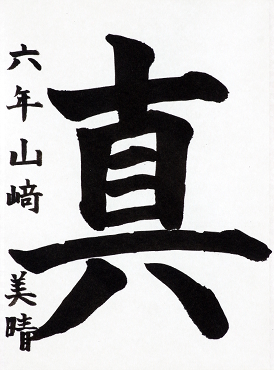 真
六年山﨑美晴